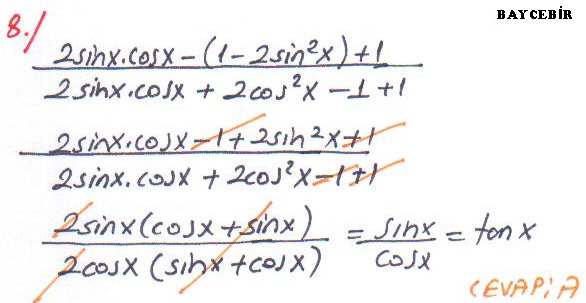 BAYCEBİR
8./
2sinx.cosx - (1 - 2sin²x) + 1
2sinx.cosx + 2cos²x - 1 + 1
2sinx.cosx - 1 + 2sin²x + 1
2sinx.cosx + 2cos²x - 1 + 1
2sinx(cosx + sinx) = sinx = tanx
2cosx (sinx + cosx) cosx
CEVAP: A